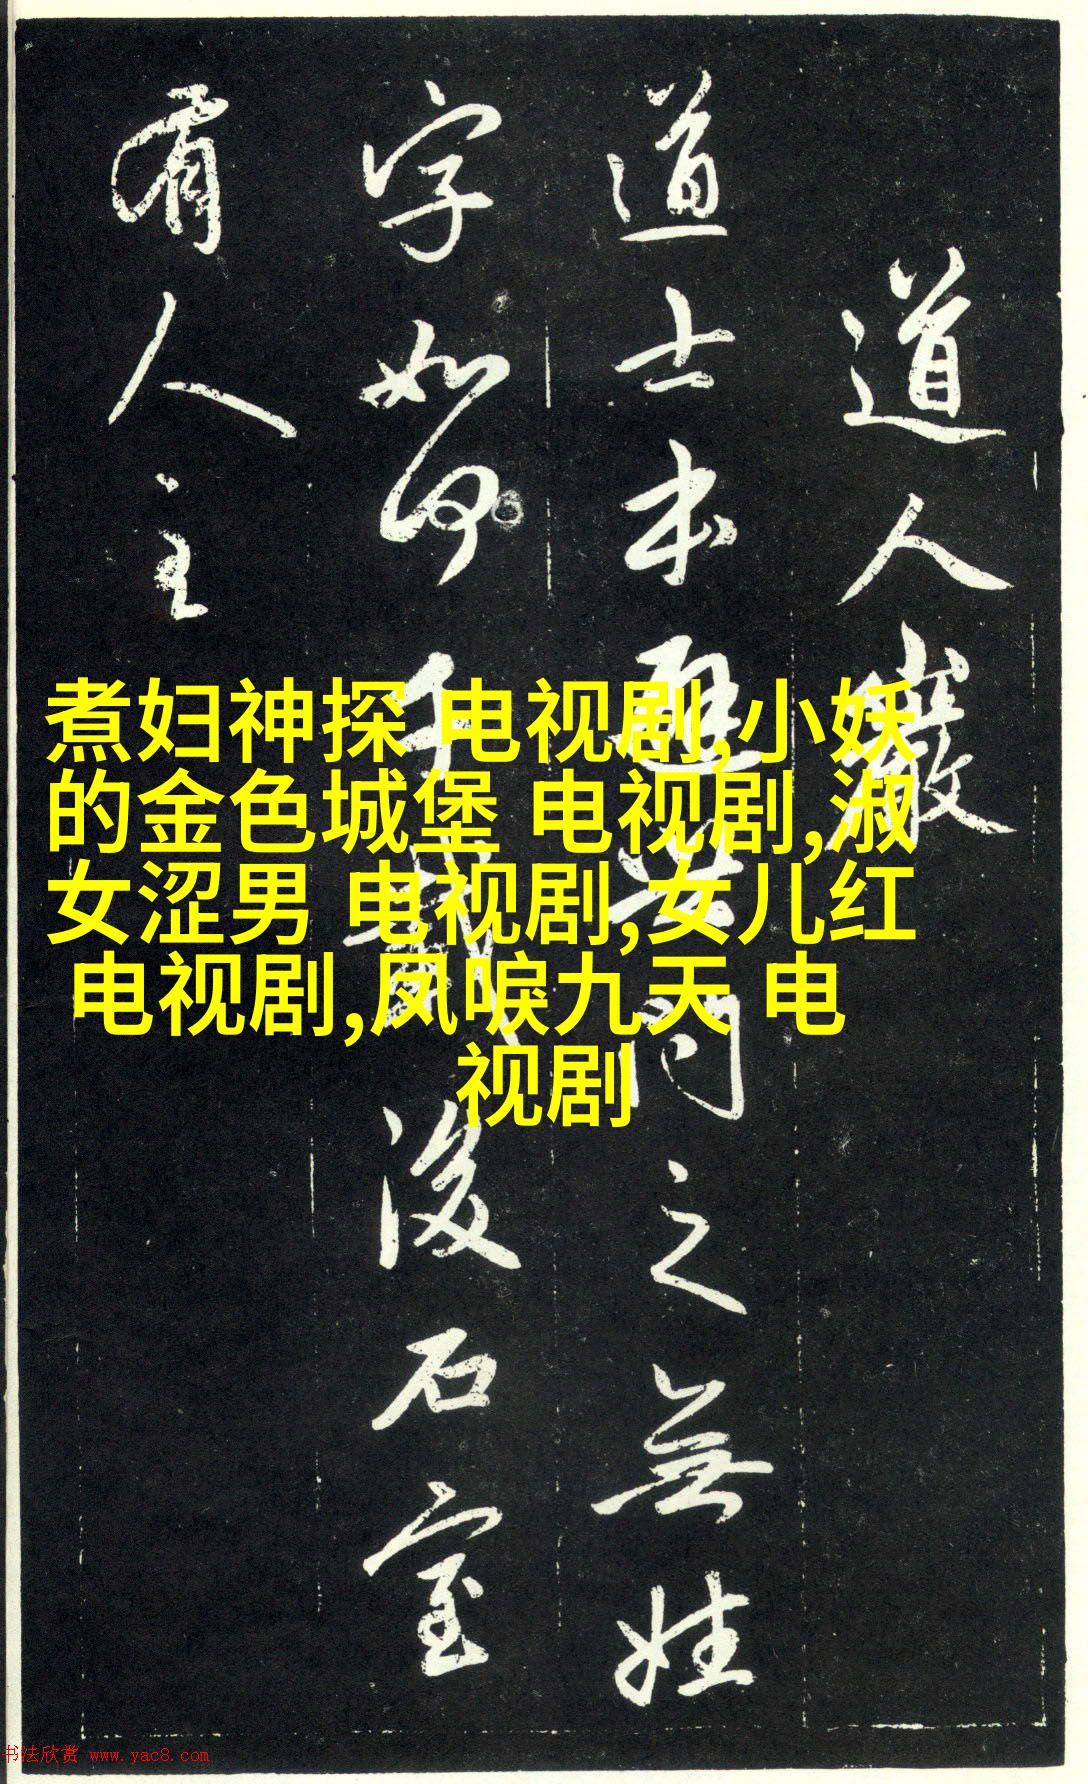 煮妇神探 电视剧,小妖
的金色城堡 电视剧,淑
女涩男 电视剧,女儿红
电视剧,凤唳九天 电
视剧
道人巖
道士本問之無姓
字如何千載後石室
有人主
书法欣赏 www.yac8.com